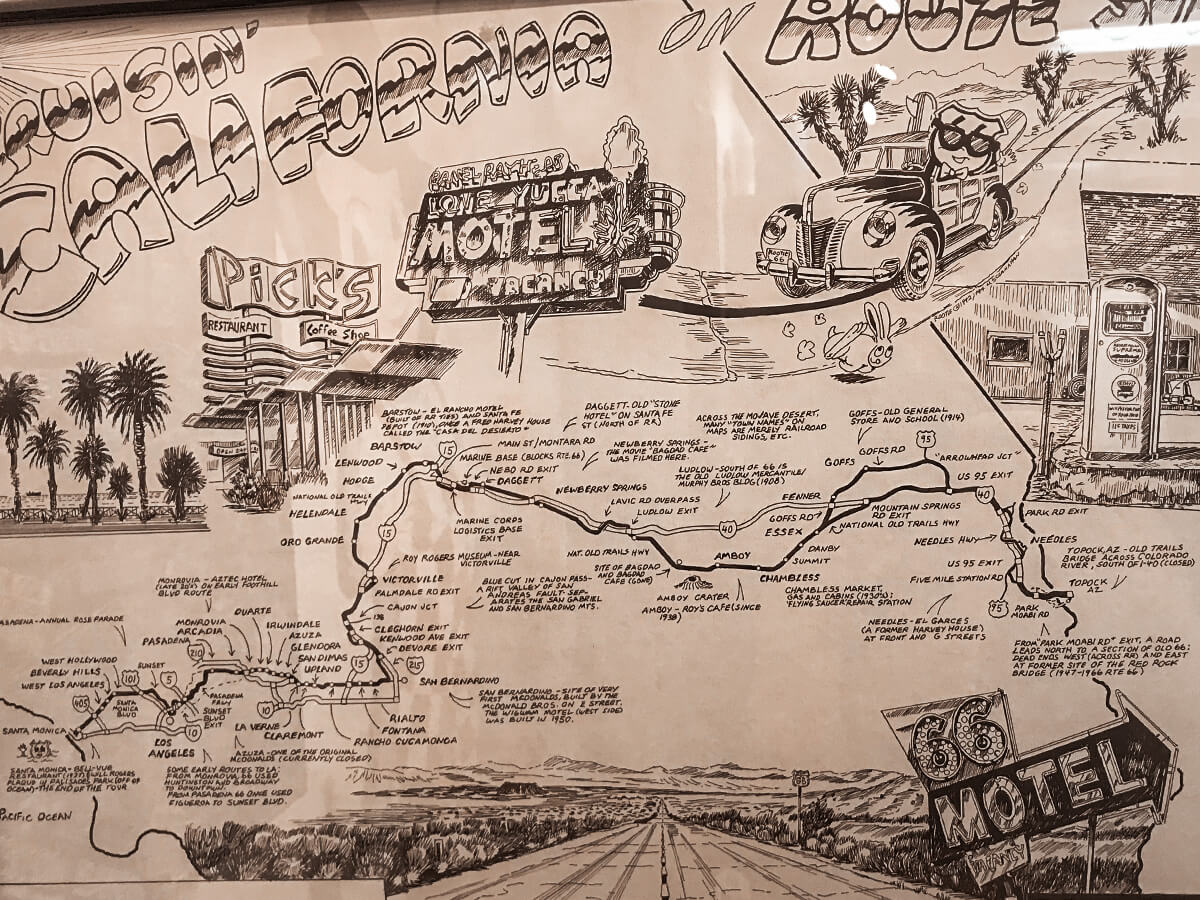 CRUISIN'
CALIFORNIA
ON
ROUTE
LONE YUCCA
MOTEL
VACANCY
ROUTE
66
66
PICK'S
RESTAURANT
Coffee Shop
BARSTOW - EL RANCHO MOTEL
(BUILT OF RR TIES) AND SANTA FE
DEPOT (1910), ONCE A FRED HARVEY HOUSE
CALLED THE "CASA DEL DESIERTO"
DAGGETT. OLD "STONE
HOTEL" ON SANTA FE
ST (NORTH OF RR)
ACROSS THE MOJAVE DESERT,
MANY "TOWN NAMES" ON
MAPS ARE MERELY RAILROAD
SIDINGS, ETC.
GOFFS - OLD GENERAL
STORE AND SCHOOL (1914)
95
BARSTOW
15
MAIN ST/MONTARA RD
MARINE BASE (BLOCKS RTE. 66)
NEBO RD EXIT
DAGGETT
NEWBERRY SPRINGS -
THE MOVIE "BAGDAD CAFE"
WAS FILMED HERE.
GOFFS RD
GOFFS
"ARROWHEAD JCT"
US 95 EXIT
LENWOOD
HODGE
NATIONAL OLD TRAILS
HWY
HELENDALE
ORO GRANDE
15
NEWBERRY SPRINGS
LUDLOW - SOUTH OF 66 IS
THE OLD LUDLOW MERCANTILE/
MURPHY BROS BLDG (1908)
LAVIC RD OVERPASS
LUDLOW EXIT
40
FENNER
GOFFS RD
ESSEX
MOUNTAIN SPRINGS
RD EXIT
NATIONAL OLD TRAILS HWY
40
PARK RD EXIT
MARINE CORPS
LOGISTICS BASE
EXIT
NAT. OLD TRAILS HWY
SITE OF BAGDAD
AND BAGDAD
CAFE (GONE)
AMBOY
AMBOY CRATER
AMBOY - ROY'S CAFE (SINCE
1938)
CHAMBLESS
DANBY
SUMMIT
CHAMBLESS MARKET,
GAS AND CABINS (1930'S);
FLYING SAUCER REPAIR STATION
NEEDLES HWY
NEEDLES
US 95 EXIT
FIVE MILE STATION RD
95
PARK
MOABI RD
TOPOCK, AZ - OLD TRAILS
BRIDGE ACROSS COLORADO
RIVER, SOUTH OF I-40 (CLOSED)
TOPOCK
AZ
NEEDLES - EL GARCES
(A FORMER HARVEY HOUSE)
AT FRONT AND G STREETS
FROM "PARK MOABI RD" EXIT, A ROAD
LEADS NORTH TO A SECTION OF OLD 66;
DEAD ENDS WEST (ACROSS RR) AND EAST
AT FORMER SITE OF THE RED ROCK
BRIDGE (1947-1966 RTE 66)
ROY ROGERS MUSEUM - NEAR
VICTORVILLE
VICTORVILLE
PALMDALE RD EXIT
CAJON JCT
138
CLEGHORN EXIT
KENWOOD AVE EXIT
DEVORE EXIT
215
15
BLUE CUT IN CAJON PASS -
A RIFT VALLEY OF SAN
ANDREAS FAULT - SEP-
ARATES THE SAN GABRIEL
AND SAN BERNARDINO MTS.
SAN BERNARDINO
SAN BERNARDINO - SITE OF VERY
FIRST MCDONALDS, BUILT BY THE
MCDONALD BROS. ON E STREET.
THE WIGWAM MOTEL (WEST SIDE)
WAS BUILT IN 1950.
MONROVIA - AZTEC HOTEL
(LATE 20'S) ON EARLY FOOTHILL
BLVD ROUTE
PASADENA - ANNUAL ROSE PARADE
DUARTE
MONROVIA
ARCADIA
PASADENA
210
IRWINDALE
AZUZA
GLENDORA
SAN DIMAS
UPLAND
WEST HOLLYWOOD
BEVERLY HILLS
WEST LOS ANGELES
SUNSET
101
5
405
SANTA
MONICA
BLVD
PASADENA
FRWY
SUNSET
BLVD
EXIT
10
10
SANTA MONICA
LOS
ANGELES
LA VERNE
CLAREMONT
RIALTO
FONTANA
RANCHO CUCAMONGA
AZUZA - ONE OF THE ORIGINAL
MCDONALDS (CURRENTLY CLOSED)
SANTA MONICA - BELL-VUE
RESTAURANT (1937); WILL ROGERS
PLAQUE IN PALISADES PARK (OFF OF
OCEAN) - THE END OF THE TOUR
SOME EARLY ROUTES TO LA:
FROM MONROVIA, 66 USED
HUNTINGTON AND BROADWAY
TO DOWNTOWN.
FROM PASADENA 66 ONCE USED
FIGUEROA TO SUNSET BLVD.
PACIFIC OCEAN
66
MOTEL
VACANCY